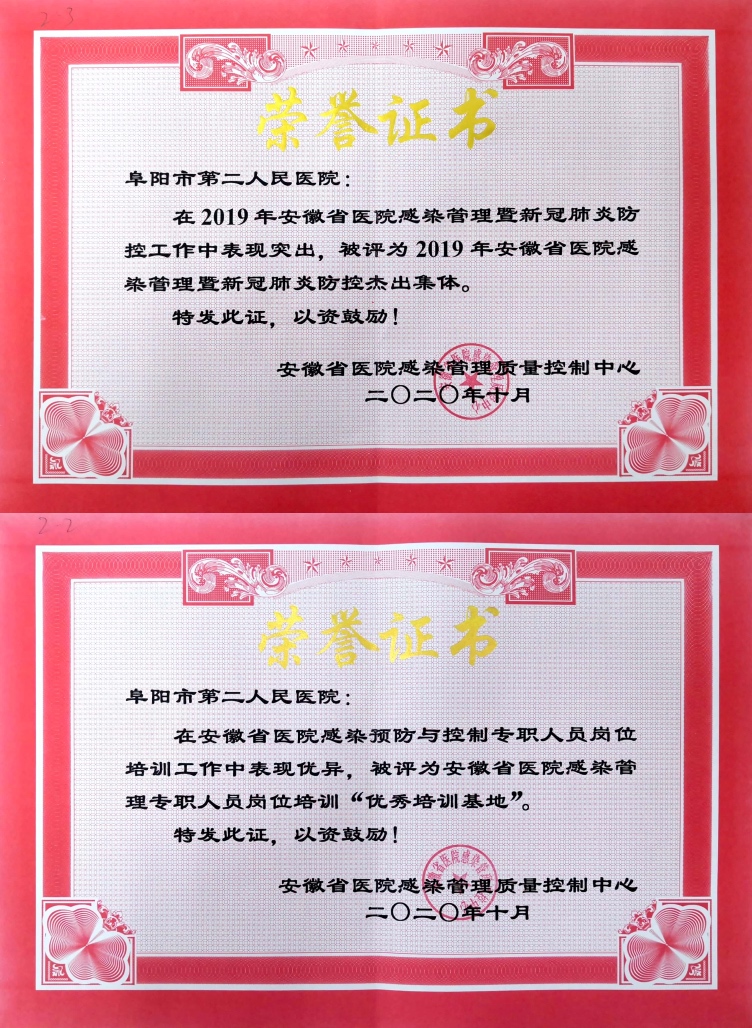 2-3
荣誉证书
阜阳市第二人民医院：
在2019年安徽省医院感染管理暨新冠肺炎防
控工作中表现突出，被评为2019年安徽省医院感
染管理暨新冠肺炎防控杰出集体。
特发此证，以资鼓励！
安徽省医院感染管理质量控制中心
二〇二〇年十月
2-2
荣誉证书
阜阳市第二人民医院：
在安徽省医院感染预防与控制专职人员岗位
培训工作中表现优异，被评为安徽省医院感染管
理专职人员岗位培训“优秀培训基地”。
特发此证，以资鼓励！
安徽省医院感染管理质量控制中心
二〇二〇年十月